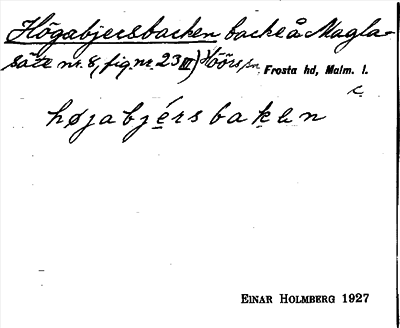 Högabjersbacken backe å Magla-
säte nr. 8, fig. nr. 23 III) Höörs sn, Frosta hd, Malm. l.
højabjérsbakan
EINAR HOLMBERG 1927